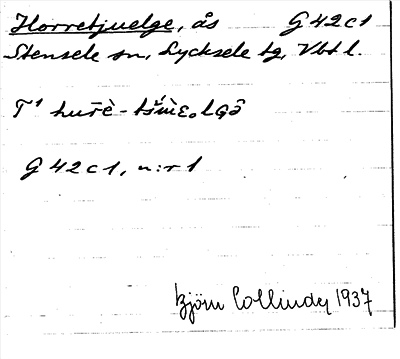 Horretjuelge, ås G 42 c 1
Stensele sn, Lycksele tg, Vbtl.
G 42 c 1, n:r 1
Björn Collinder 1937